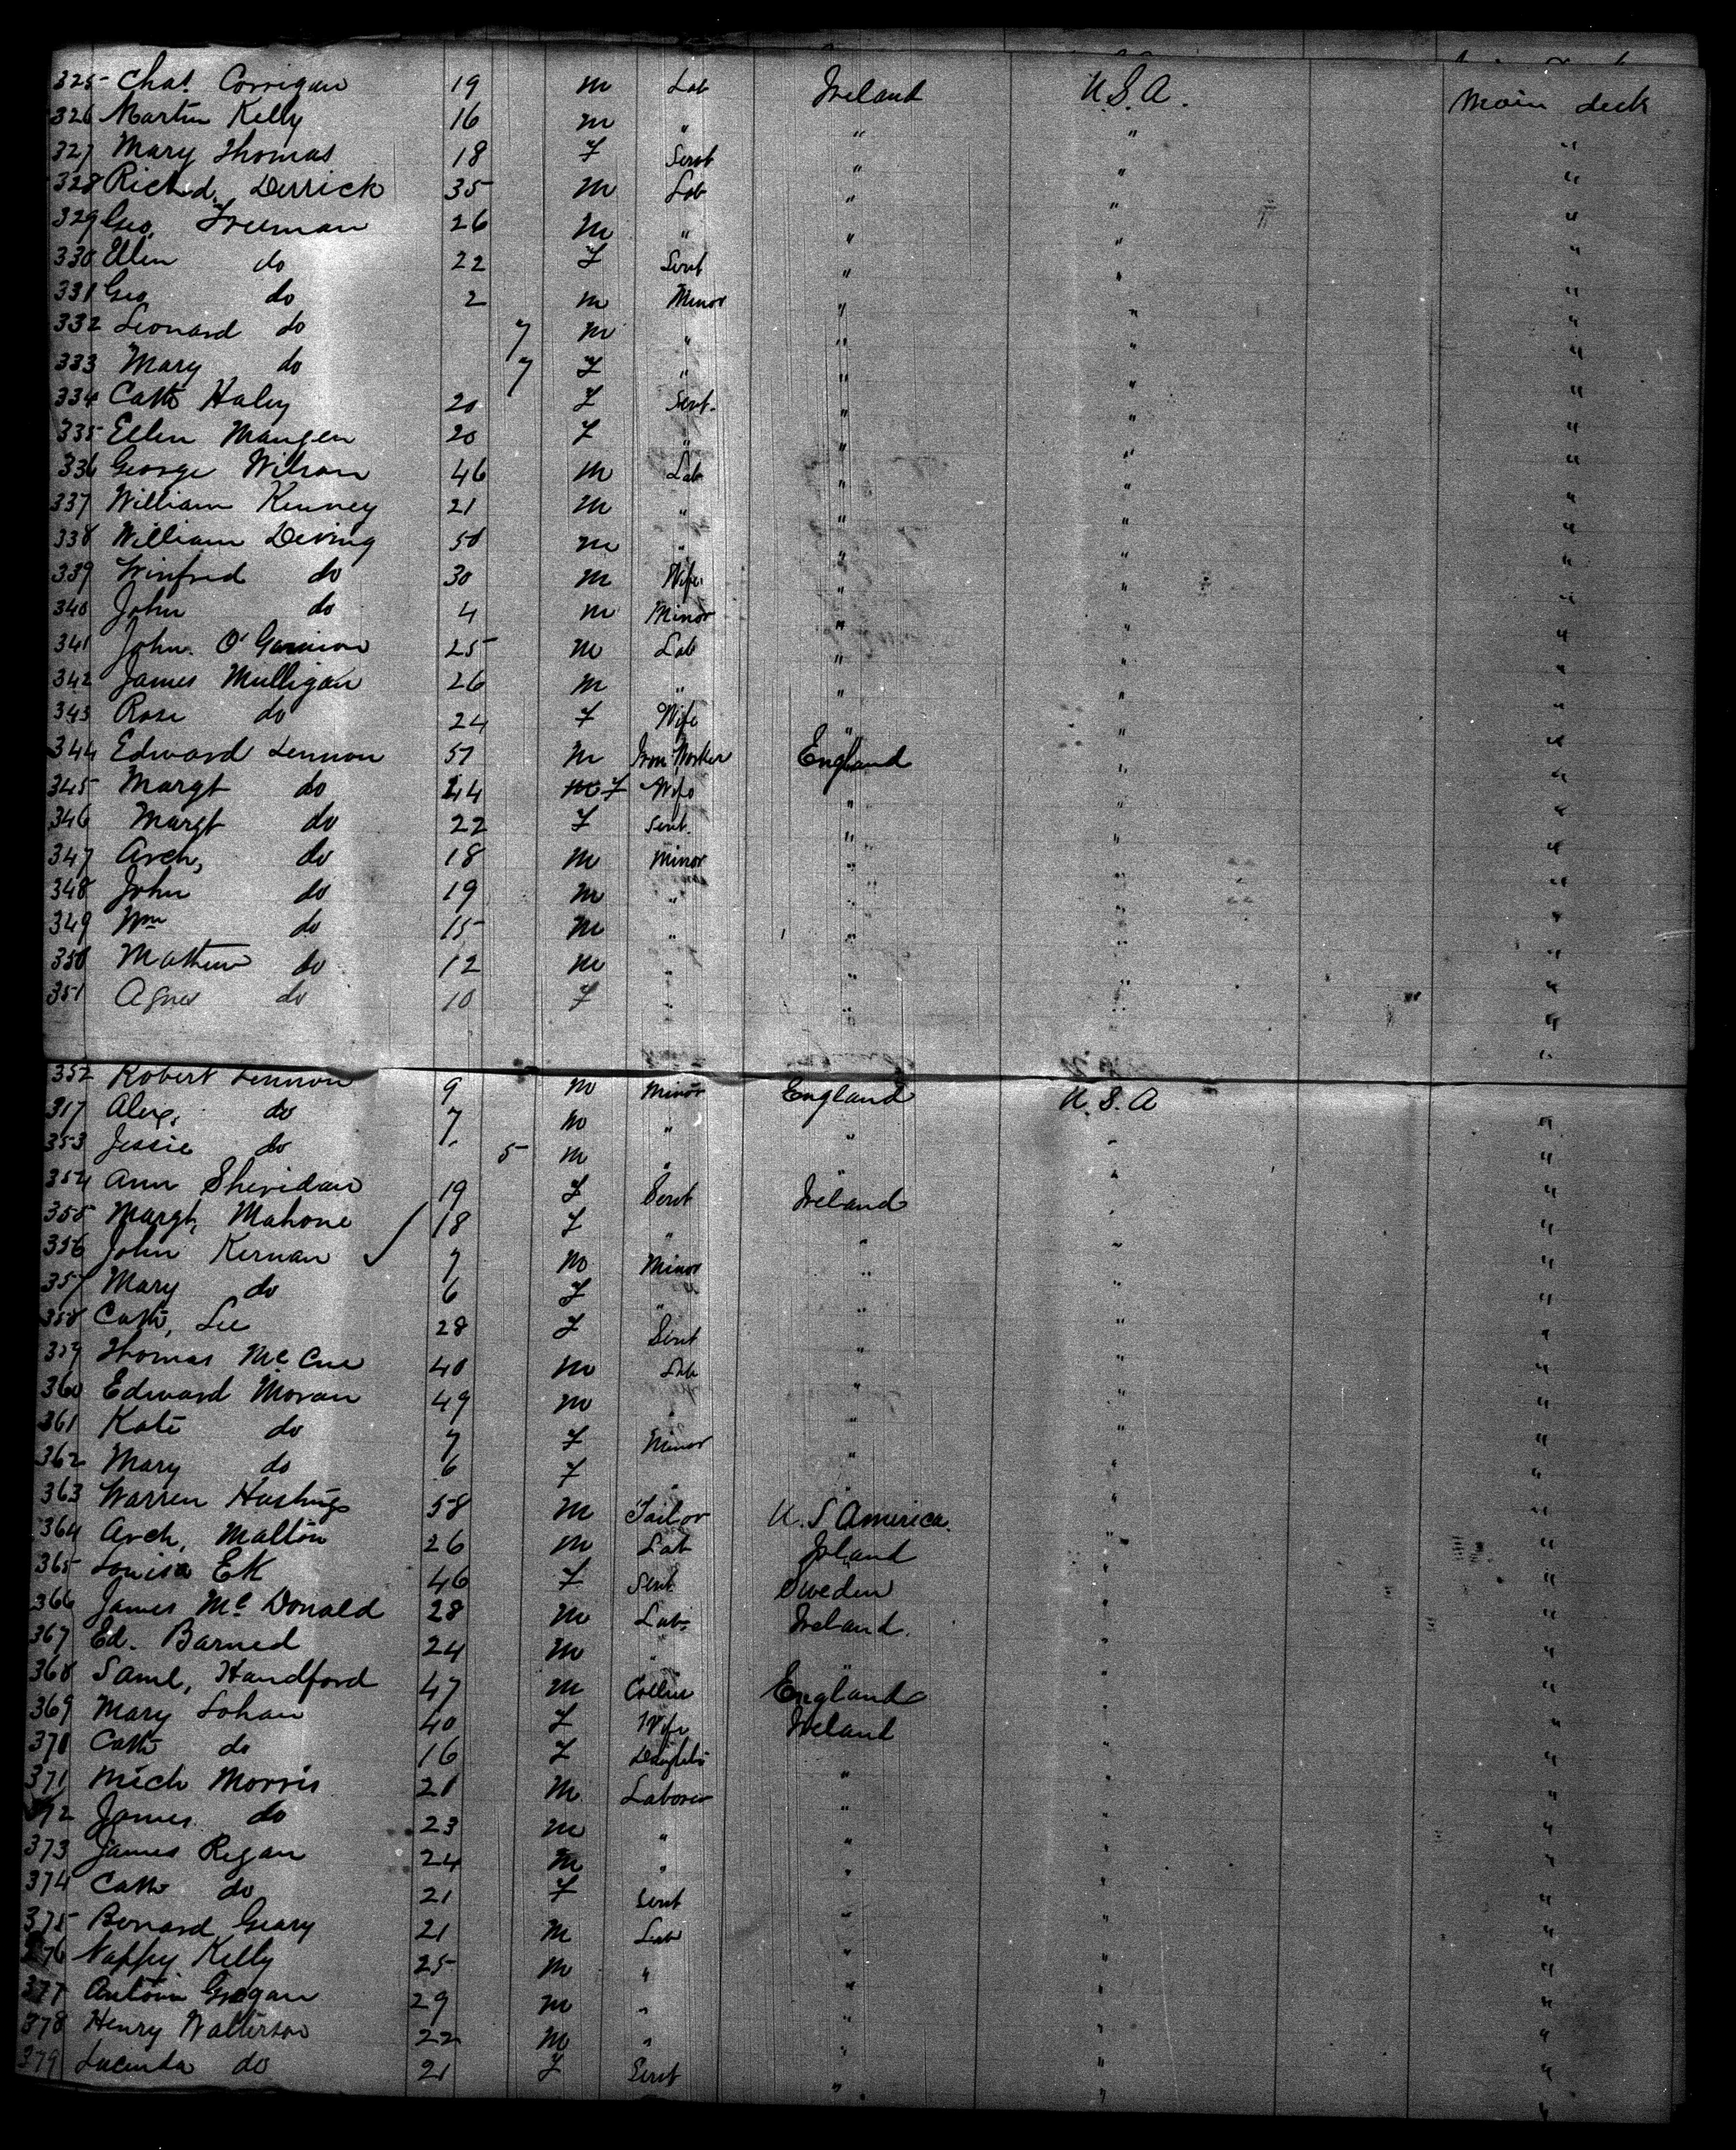 325 Chas. Corrigan 19 m Lab Ireland U.S.A. Main deck
326 Martin Kelly 16 m " " " "
327 Mary Thomas 18 F Servt " " "
328 Richd. Derrick 35 m Lab " " "
329 Geo. Freeman 26 m " " " "
330 Ellen do 22 F Servt " " "
331 Geo do 2 m Minor " " "
332 Leonard do 7 m " " " "
333 Mary do 7 F " " " "
334 Cath Haley 20 F Servt. " " "
335 Ellen Mangen 20 F " " " "
336 George Wilson 46 m Lab " " "
337 William Kenney 21 m " " " "
338 William Deving 50 m " " " "
339 Winfred do 30 m Wife " " "
340 John do 4 m Minor " " "
341 John O' 25 m Lab " " "
342 James Mulligan 26 m " " " "
343 Rose do 24 F Wife " " "
344 Edward Lennon 57 m Iron Worker England " "
345 Margt do 44 m F Wife " " "
346 Margt do 22 F Servt. " " "
347 Arch, do 18 m Minor " " "
348 John do 19 m " " " "
349 Wm do 15 m " " " "
350 Mathew do 12 m " " " "
351 Agnes do 10 F " " " "
352 Robert Lennon 9 m Minor England U.S.A "
317 Alex, do 7 m " " " "
353 Jessie do 5 m " " " "
354 Ann Sheridan 19 F Servt Ireland " "
355 Margt, Mahone 18 F " " " "
356 John Kernan 7 m Minor " " "
357 Mary do 6 F " " " "
358 Cath, Lee 28 F Servt " " "
359 Thomas McCue 40 m Lab " " "
360 Edward Moran 49 m " " " "
361 Kate do 7 F Minor " " "
362 Mary do 6 F " " " "
363 Warren Hastings 58 m U.S America. " "
364 Arch, Malton 26 m Lab Ireland " "
365 Louisa Ek 46 F Servt Sweden " "
366 James McDonald 28 m Lab. Ireland. " "
367 Ed. Barned 24 m " " " "
368 Saml, Handford 47 m Collier England " "
369 Mary Lohan 40 F Wife Ireland " "
370 Cath do 16 F Daughter " " "
371 Mich Morris 21 m Laborer " " "
372 James do 23 m " " " "
373 James Regan 24 m " " " "
374 Cath do 21 F Servt " " "
375 Benard Geary 21 m Lab " " "
376 Kelly 25 m " " " "
377 Grogan 29 m " " " "
378 Henry Walterson 22 m " " " "
379 Lucinda do 21 F Servt " " "